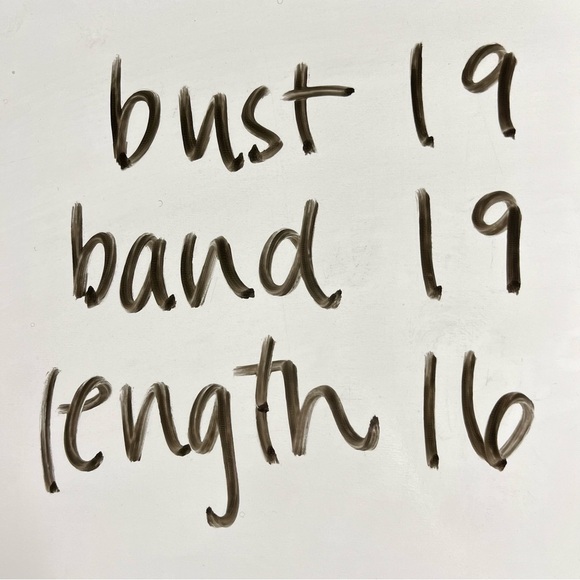 bust 19
band 19
length 16